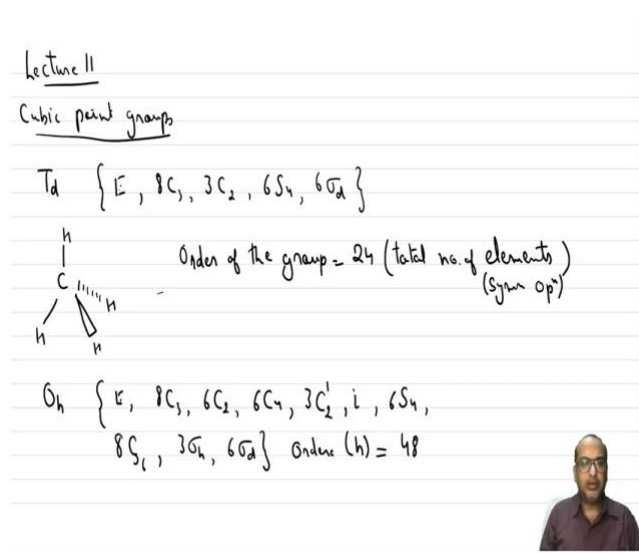 Lecture 11
Cubic point groups
Td { E, 8C3, 3C2, 6S4, 6σd }
H
C
H
H
H
Order of the group = 24 (total no. of elements)
(Symm opⁿ)
Oh { E, 8C3, 6C2, 6C4, 3C2', i, 6S4,
8S6, 3σh, 6σd } order (h) = 48